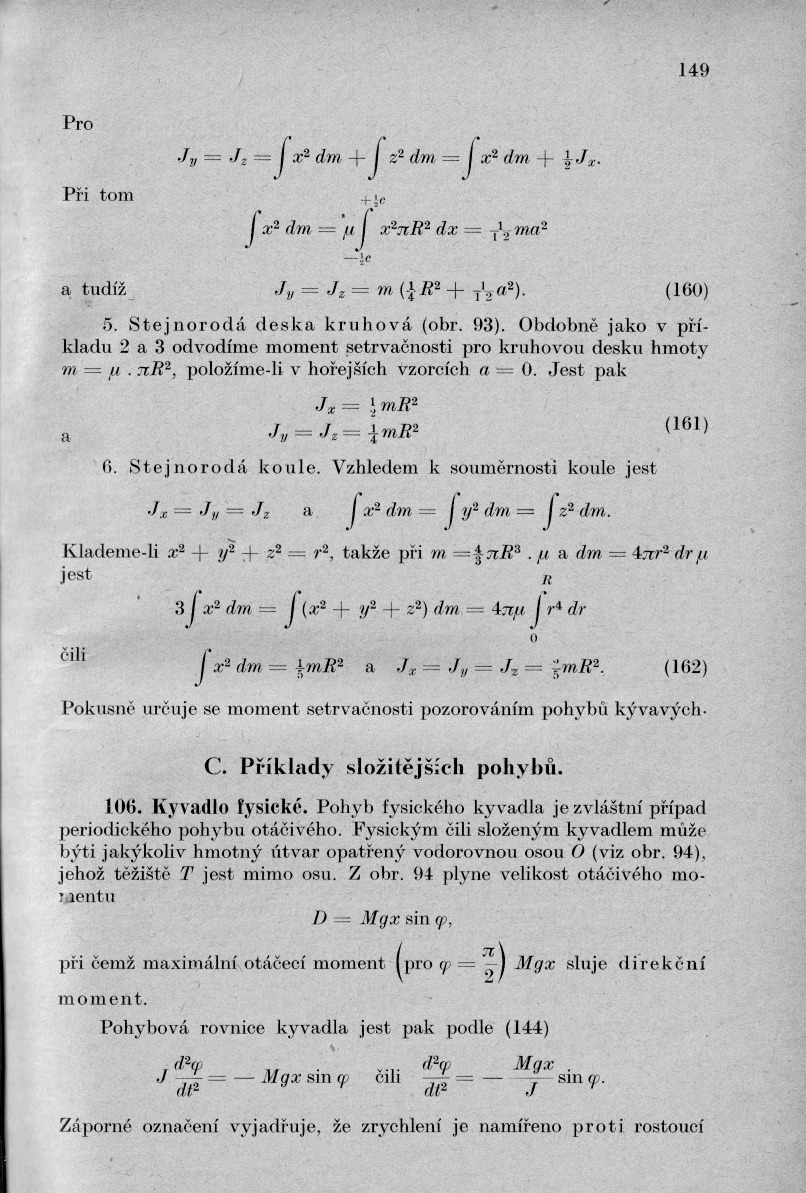 149
Pro
J_y = J_z = ∫ x² dm + ∫ z² dm = ∫ x² dm + ½ J_x.
Při tom
∫ x² dm = μ ∫_{—½c}^{+½c} x²πR² dx = 1/12 ma²
a tudíž J_y = J_z = m (¼ R² + 1/12 a²). (160)
5. Stejnorodá deska kruhová (obr. 93). Obdobně jako v pří-
kladu 2 a 3 odvodíme moment setrvačnosti pro kruhovou desku hmoty
m = μ . πR², položíme-li v hořejších vzorcích a = 0. Jest pak
J_x = ½ mR²
a J_y = J_z = ¼ mR² (161)
6. Stejnorodá koule. Vzhledem k souměrnosti koule jest
J_x = J_y = J_z a ∫ x² dm = ∫ y² dm = ∫ z² dm.
Klademe-li x² + y² + z² = r², takže při m = 4/3 πR³ . μ a dm = 4πr² dr μ
jest
3 ∫ x² dm = ∫ (x² + y² + z²) dm = 4πμ ∫_0^R r⁴ dr
čili ∫ x² dm = 1/5 mR² a J_x = J_y = J_z = 2/5 mR². (162)
Pokusně určuje se moment setrvačnosti pozorováním pohybů kývavých.
C. Příklady složitějších pohybů.
106. Kyvadlo fysické. Pohyb fysického kyvadla je zvláštní případ
periodického pohybu otáčivého. Fysickým čili složeným kyvadlem může
býti jakýkoliv hmotný útvar opatřený vodorovnou osou O (viz obr. 94),
jehož těžiště T jest mimo osu. Z obr. 94 plyne velikost otáčivého mo-
mentu
D = Mgx sin φ,
při čemž maximální otáčecí moment (pro φ = π/2) Mgx sluje direkční
moment.
Pohybová rovnice kyvadla jest pak podle (144)
J d²φ/dt² = — Mgx sin φ čili d²φ/dt² = — Mgx/J sin φ.
Záporné označení vyjadřuje, že zrychlení je namířeno proti rostoucí